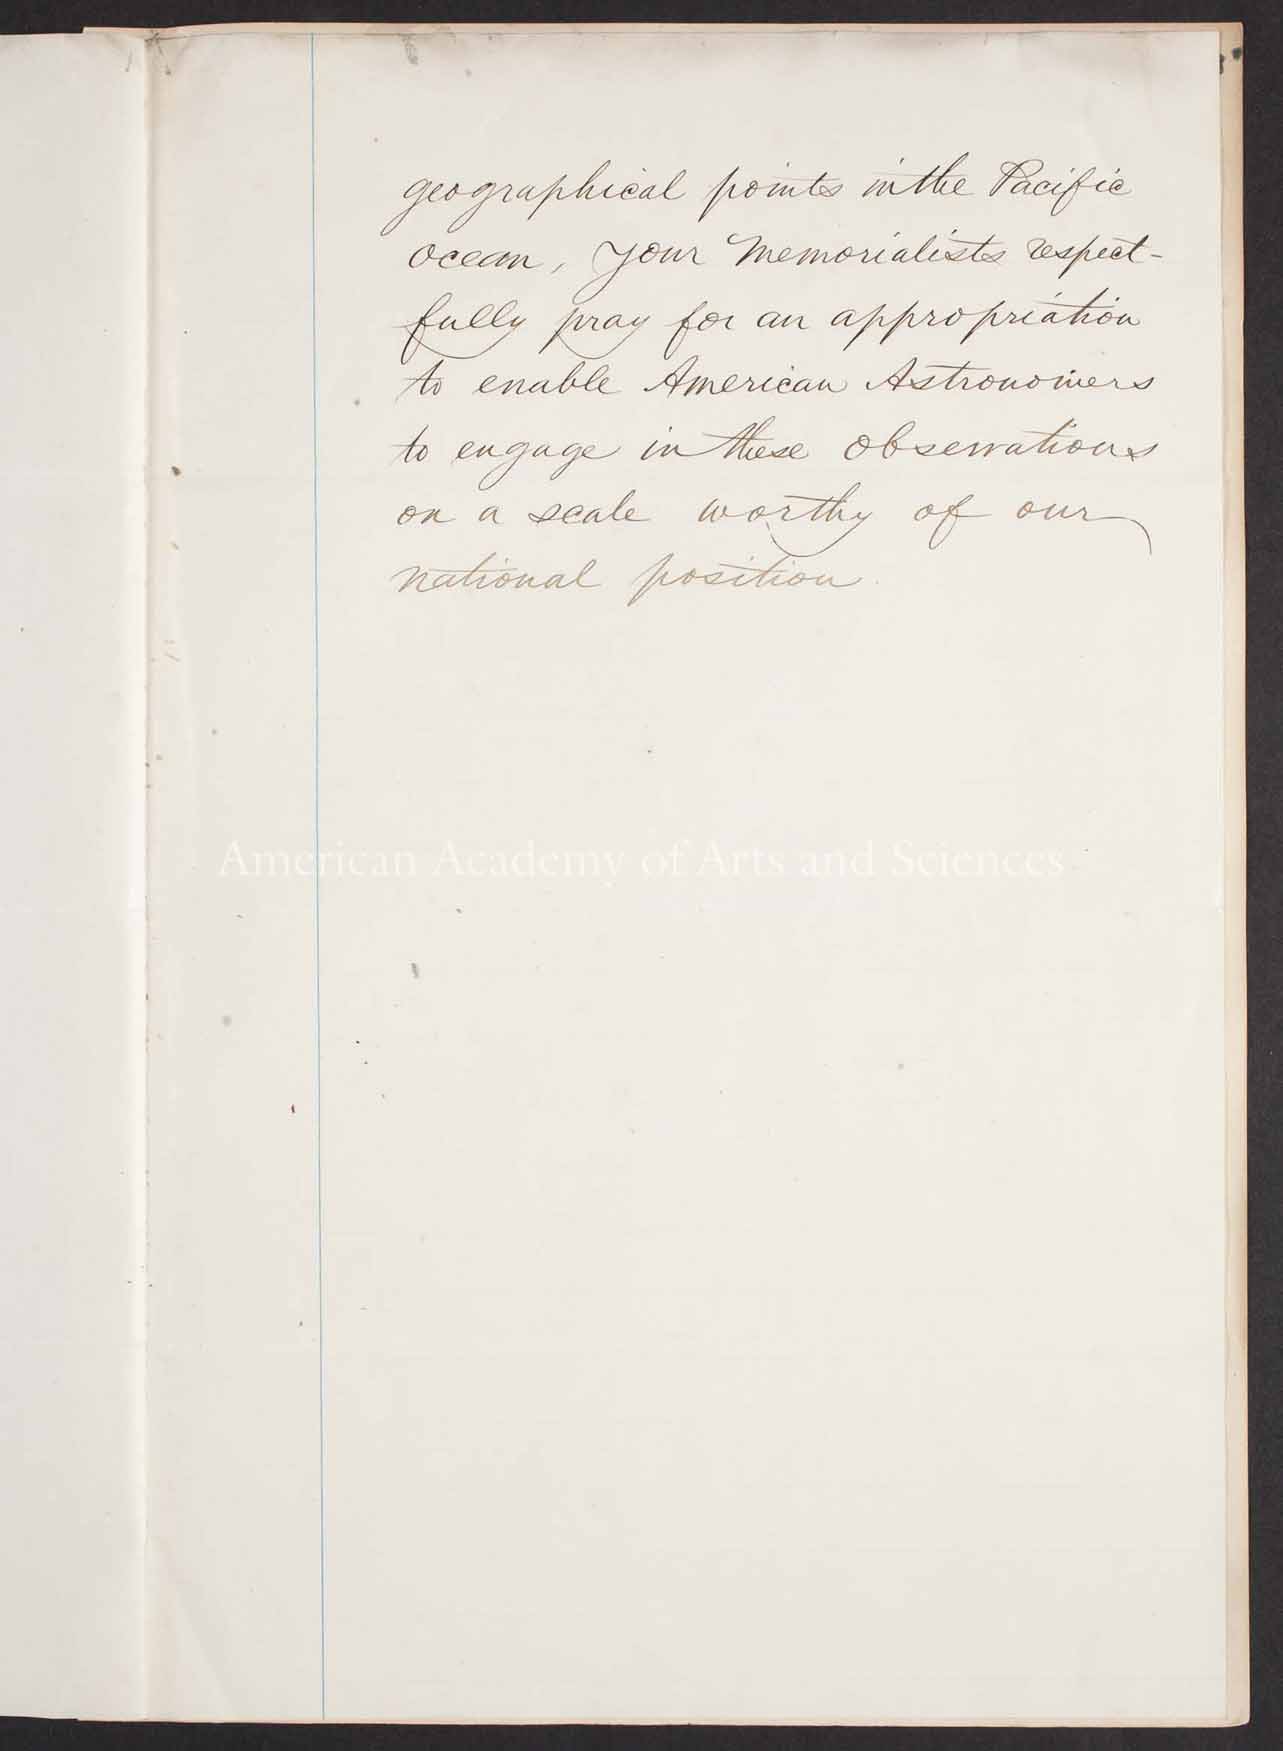 geographical points in the Pacific
Ocean, your Memorialists respect-
fully pray for an appropriation
to enable American Astronomers
to engage in these observations
on a scale worthy of our
national position.
American Academy of Arts and Sciences